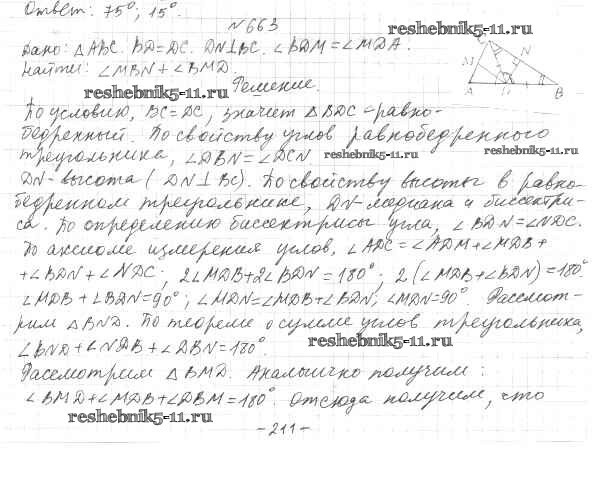 Ответ: 75°; 15°.
№663
reshebnik5-11.ru
Дано: △ABC. BD=DC. DN⊥BC. ∠BDM=∠MDA.
Найти: ∠MBN+∠BMD.
M N
A D B
reshebnik5-11.ru
Решение.
По условию, BC=DC, значит △BDC-равно-
бедренный. По свойству углов равнобедренного
треугольника, ∠DBN=∠DCN
reshebnik5-11.ru
reshebnik5-11.ru
DN-высота (DN⊥BC). По свойству высоты в равно-
бедренном треугольнике, DN-медиана и биссектри-
са. По определению биссектрисы угла, ∠BDN=∠NDC.
По аксиоме измерения углов, ∠ADC=∠ADM+∠MDB+
+∠BDN+∠NDC; 2∠MDB+2∠BDN=180°; 2(∠MDB+∠BDN)=180°
∠MDB+∠BDN=90°; ∠MDN=∠MDB+∠BDN, ∠MDN=90°. Рассмот-
рим △BND. По теореме о сумме углов треугольника,
∠BND+∠NDB+∠DBN=180°.
reshebnik5-11.ru
Рассмотрим △BMD. Аналогично получим:
∠BMD+∠MDB+∠DBM=180°. Отсюда получим, что
reshebnik5-11.ru
-211-